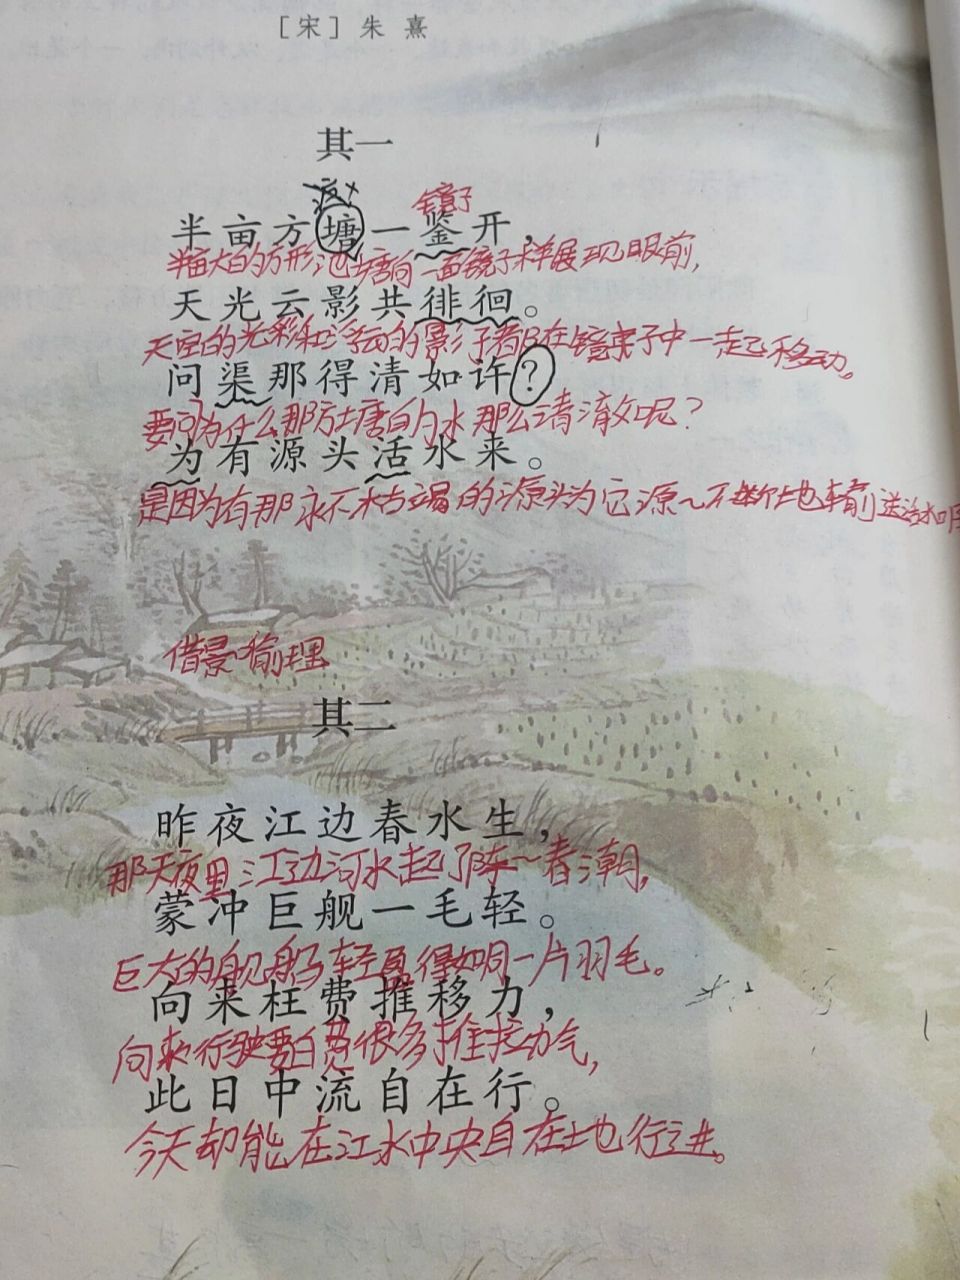 [宋]朱熹
其一
镜子
半亩方塘一鉴开，
半亩大的方形池塘向一面镜子来展现眼前，
天光云影共徘徊。
天空的光彩和浮云的影子都在镜子中一起移动。
问渠那得清如许？
要问为什么那方塘的水那么清澈呢？
为有源头活水来。
是因为有那永不枯竭的源头为它源~不断地输送活水啊
借景喻理
其二
昨夜江边春水生，
那天夜里江边河水起了阵~春潮，
蒙冲巨舰一毛轻。
巨大的舰船轻盈得如同一片羽毛。
向来枉费推移力，
向来行驶要白费很多推拉力气，
此日中流自在行。
今天却能在江水中央自在地行进。